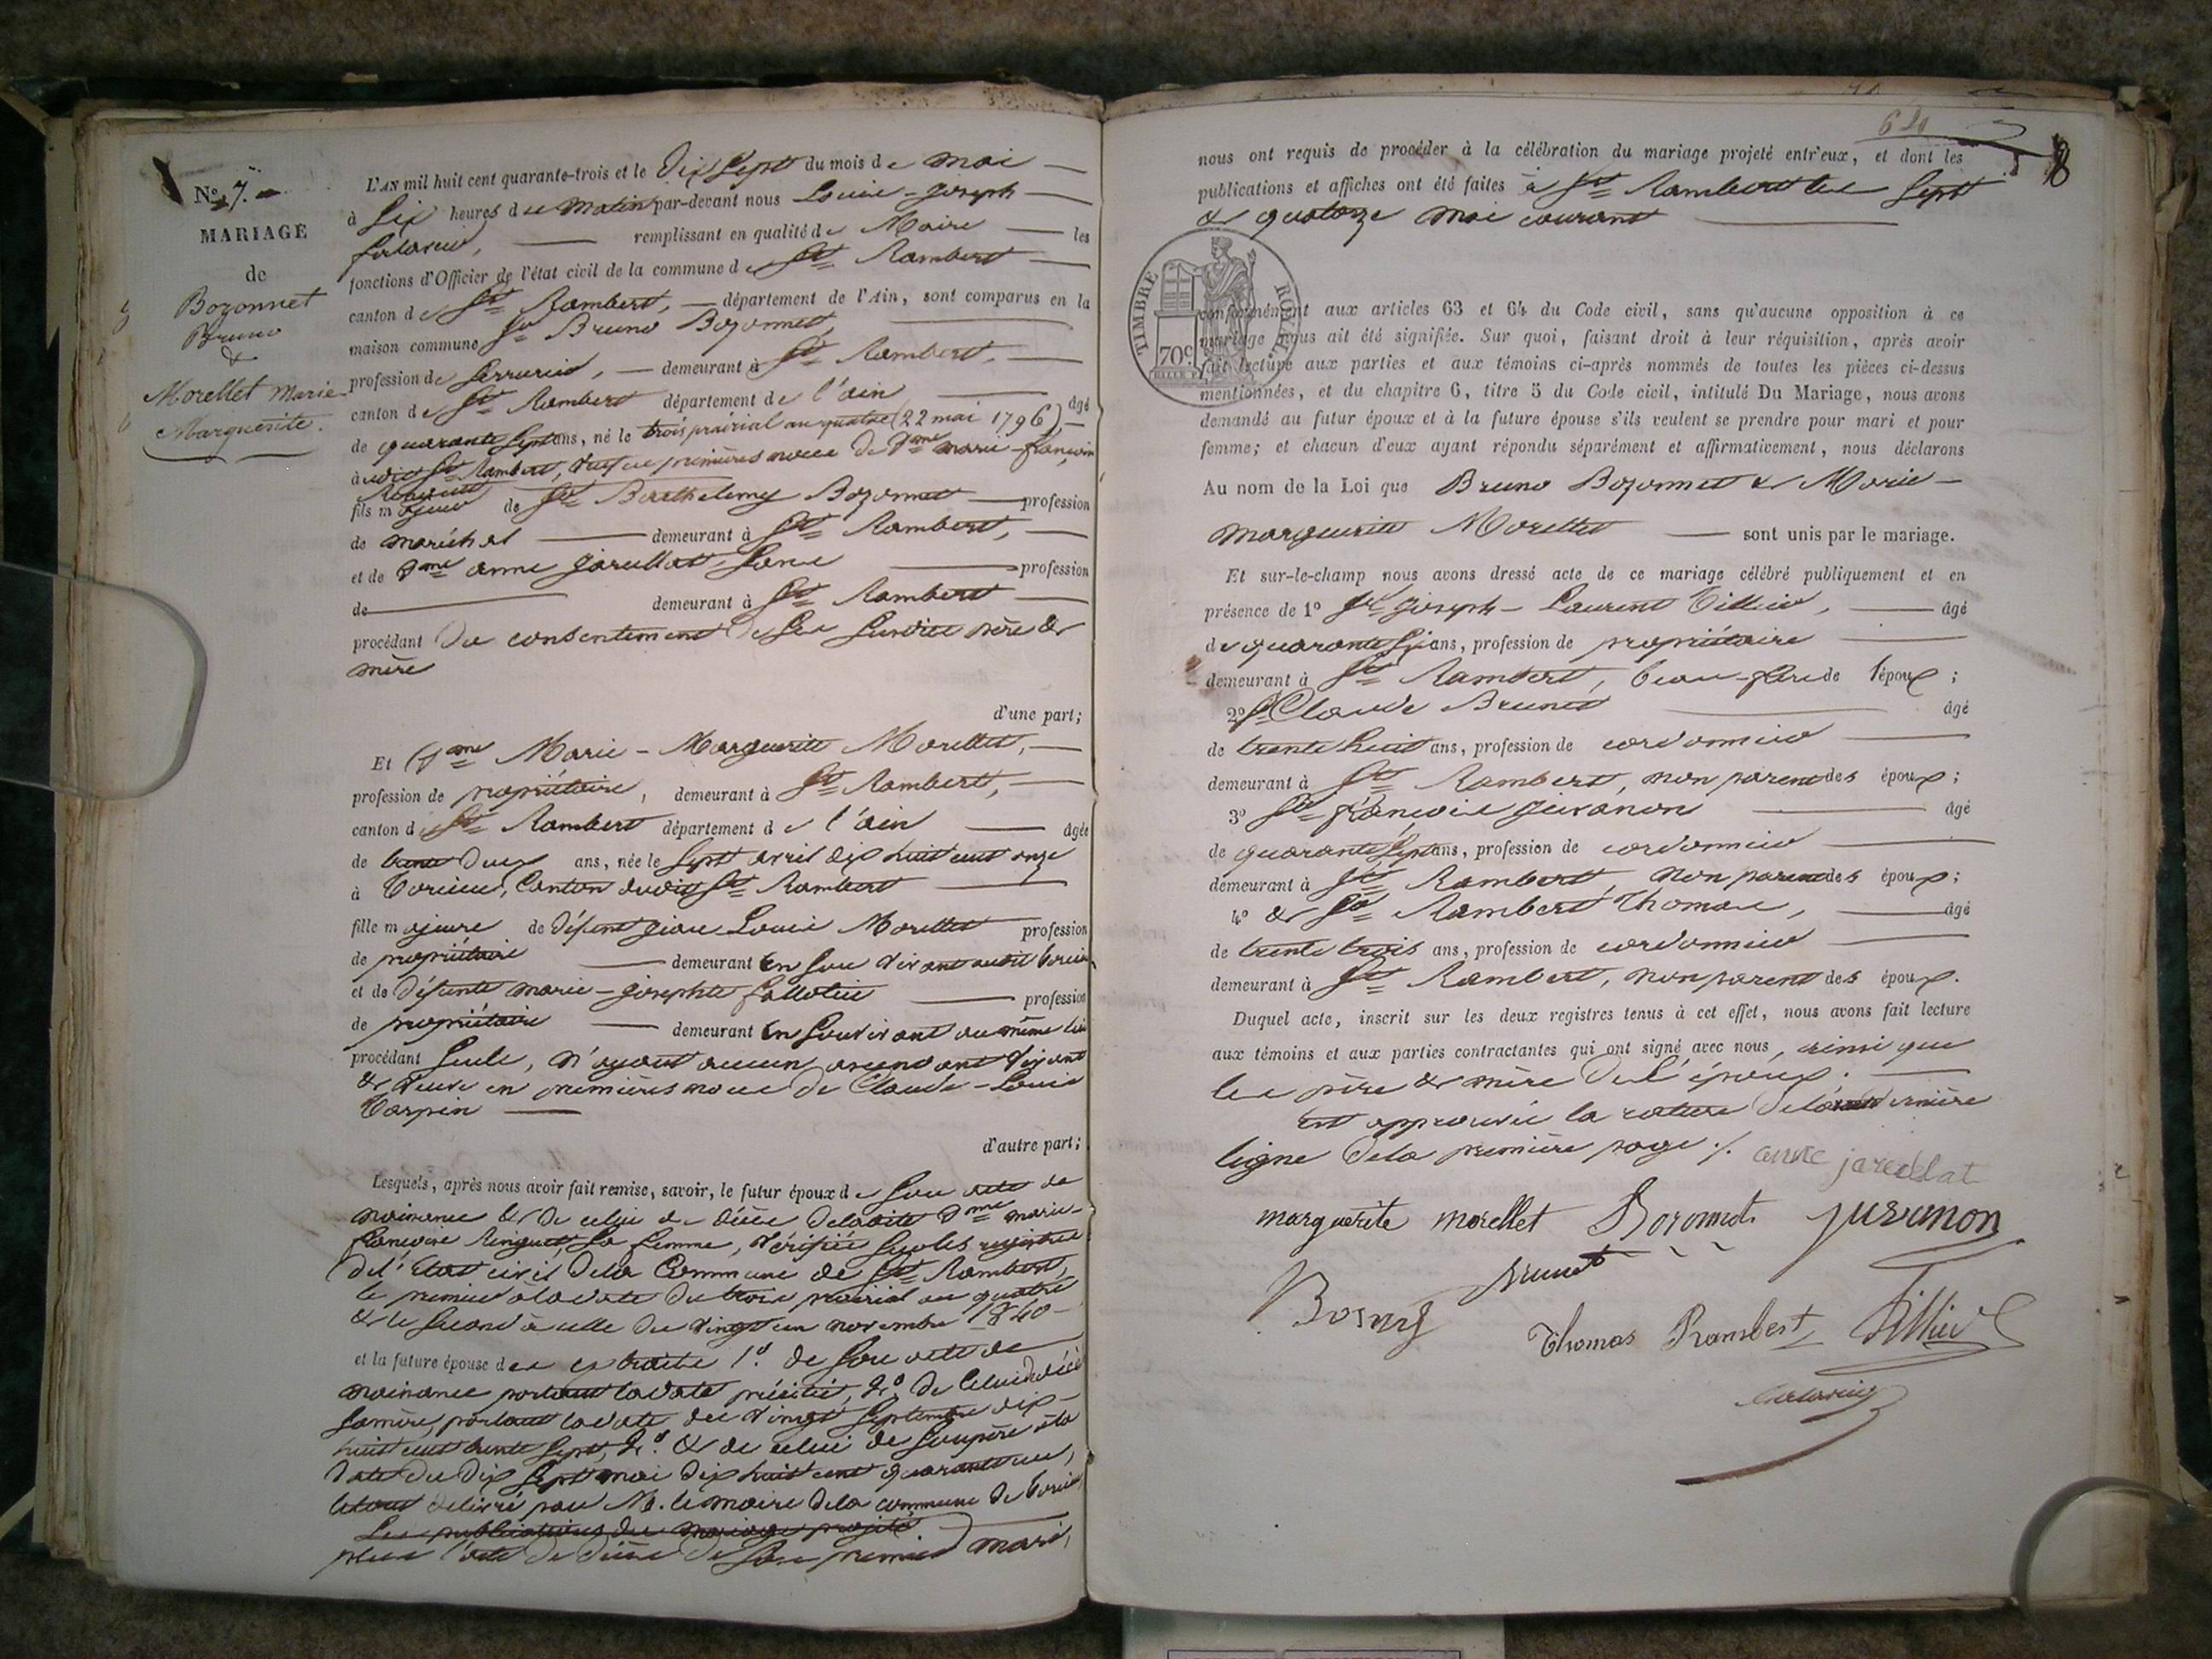 N.º 7.
MARIAGE
de
Bozonnet
Bruno
&
Morellet Marie
Marguerite.
L'AN mil huit cent quarante-trois et le Dix Sept du mois de mai
à Six heures du matin par-devant nous Louis-Joseph
remplissant en qualité de Maire les
fonctions d'Officier de l'état civil de la commune de St Rambert
canton de St Rambert, département de l'Ain, sont comparus en la
maison commune Sr Bruno Bozonnet,
profession de Serrurier, demeurant à St Rambert,
canton de St Rambert département de l'ain âgé
de quarante Sept ans, né le trois prairial an quatre (22 mai 1796)
audit St Rambert, veuf en premières noces de Dme marie-françoise
Ringuet
fils majeur de Sr Barthelemy Bozonnet profession
de maréchal demeurant à St Rambert,
et de Dme anne Jarcellat, Sans profession
de demeurant à St Rambert
procédant du consentement de Ses Susdits père &
mère
d'une part;
Et Dme Marie-Marguerite Morellet,
profession de propriétaire, demeurant à St Rambert,
canton de St Rambert département de l'ain âgée
de trente Deux ans, née le Sept avril dix huit cent onze
à Torcieu, Canton dudit St Rambert
fille majeure de défunt Jean Louis Morellet profession
de propriétaire demeurant En Son vivant audit torcieu
et de défunte marie-josephte profession
de propriétaire demeurant En Son vivant au même lieu
procédant Seule, n'ayant aucun ascendant vivant
& veuve en premières noces de Claude-Louis
Tarpin
d'autre part;
Lesquels, après nous avoir fait remise, savoir, le futur époux de Son acte de
naissance & de celui de décès de ladite Dme marie-
françoise Ringuet, Sa femme, vérifiés Sur les registres
de l'Etat civil de la Commune de St Rambert,
le premier à la date du trois prairial an quatre
& le Second à celle du vingt un novembre 1840
et la future épouse des extraits 1.º de Son acte de
naissance portant la date précitée, 2º De Celui de décès
Sa mère, portant la date du vingt Septembre dix-
huit cent trente Sept, 3.º & de celui de Son père à la
date du Dix Sept mai dix huit cent quarante un,
le tout délivré par M. le maire de la commune de torcieu
Les publications du mariage projeté
plus l'acte de décès de Son premier mari,
620
nous ont requis de procéder à la célébration du mariage projeté entr'eux, et dont les
publications et affiches ont été faites à St Rambert les Sept
& quatorze mai courant
TIMBRE ROYAL
70 c
conformément aux articles 63 et 64 du Code civil, sans qu'aucune opposition à ce
mariage nous ait été signifiée. Sur quoi, faisant droit à leur réquisition, après avoir
fait lecture aux parties et aux témoins ci-après nommés de toutes les pièces ci-dessus
mentionnées, et du chapitre 6, titre 5 du Code civil, intitulé Du Mariage, nous avons
demandé au futur époux et à la future épouse s'ils veulent se prendre pour mari et pour
femme; et chacun d'eux ayant répondu séparément et affirmativement, nous déclarons
Au nom de la Loi que Bruno Bozonnet & Marie
marguerite Morellet sont unis par le mariage.
Et sur-le-champ nous avons dressé acte de ce mariage célébré publiquement et en
présence de 1º Sr Joseph-Laurent Tillier, âgé
de quarante Six ans, profession de propriétaire
demeurant à St Rambert, beau-frère de l'époux;
2º Sr Claude Brunet âgé
de trente huit ans, profession de cordonnier
demeurant à St Rambert, non parent des époux;
3º Sr françois Juvanon âgé
de quarante Sept ans, profession de cordonnier
demeurant à St Rambert, non parent des époux;
4º & Sr Rambert Thomas, âgé
de trente trois ans, profession de cordonnier
demeurant à St Rambert, non parent des époux.
Duquel acte, inscrit sur les deux registres tenus à cet effet, nous avons fait lecture
aux témoins et aux parties contractantes qui ont signé avec nous, ainsi que
les père & mère de l'époux.
Est approuvée la rature de l'avant dernière
ligne de la première page ./. anne jarcellat
marguerite morellet Bozonnet juvanon
brunet
Thomas Rambert Tillier